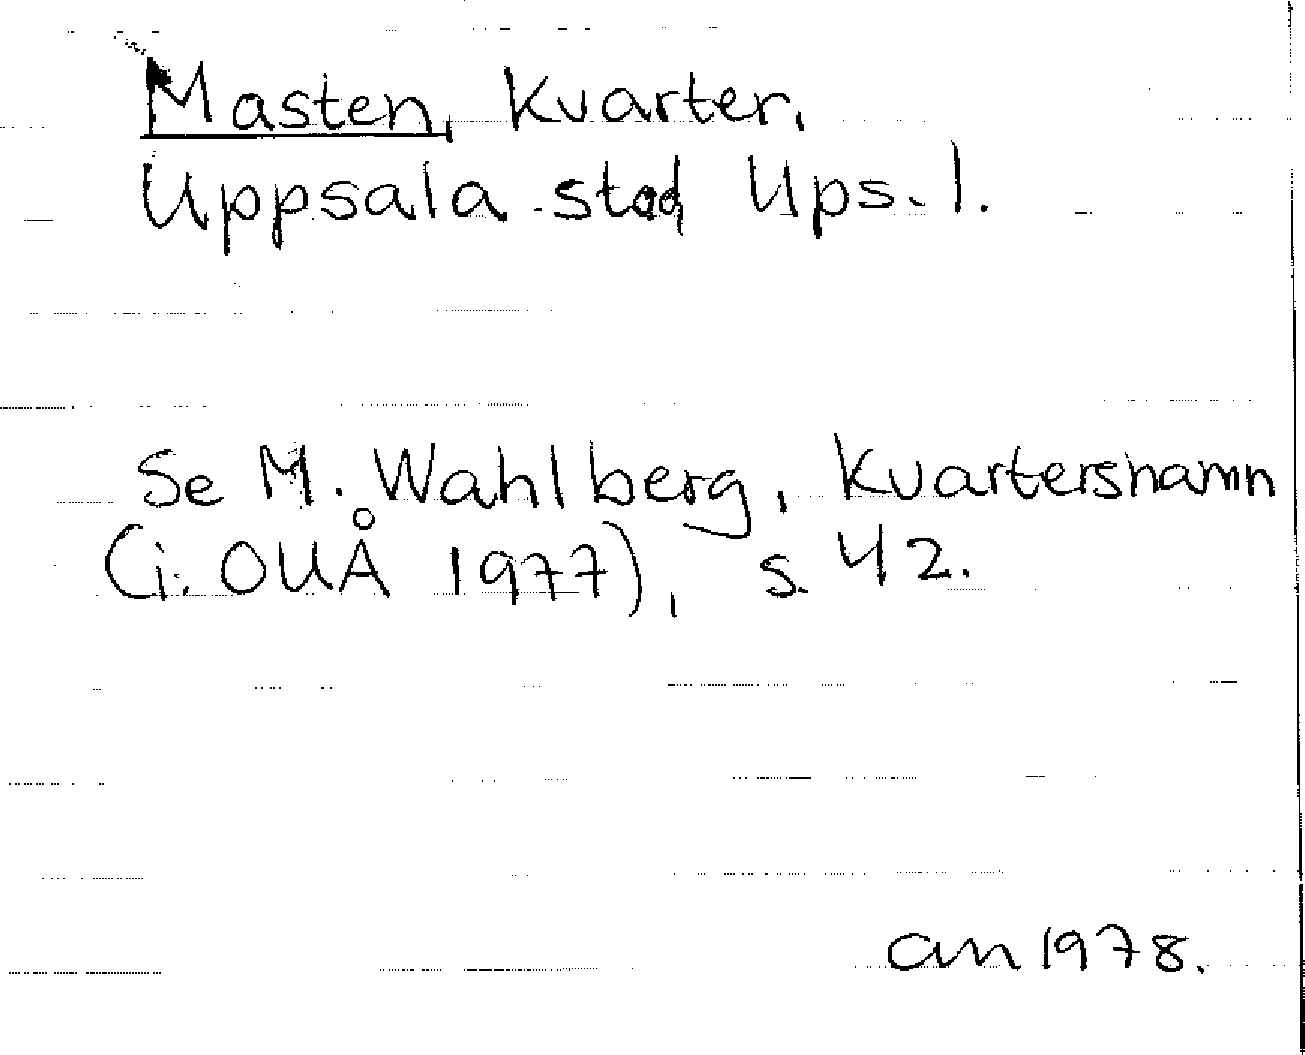 Masten, kvarter,
Uppsala stad Ups. l.
Se M. Wahlberg, Kvartersnamn
(i: OUÅ 1977), s. 42.
an 1978.